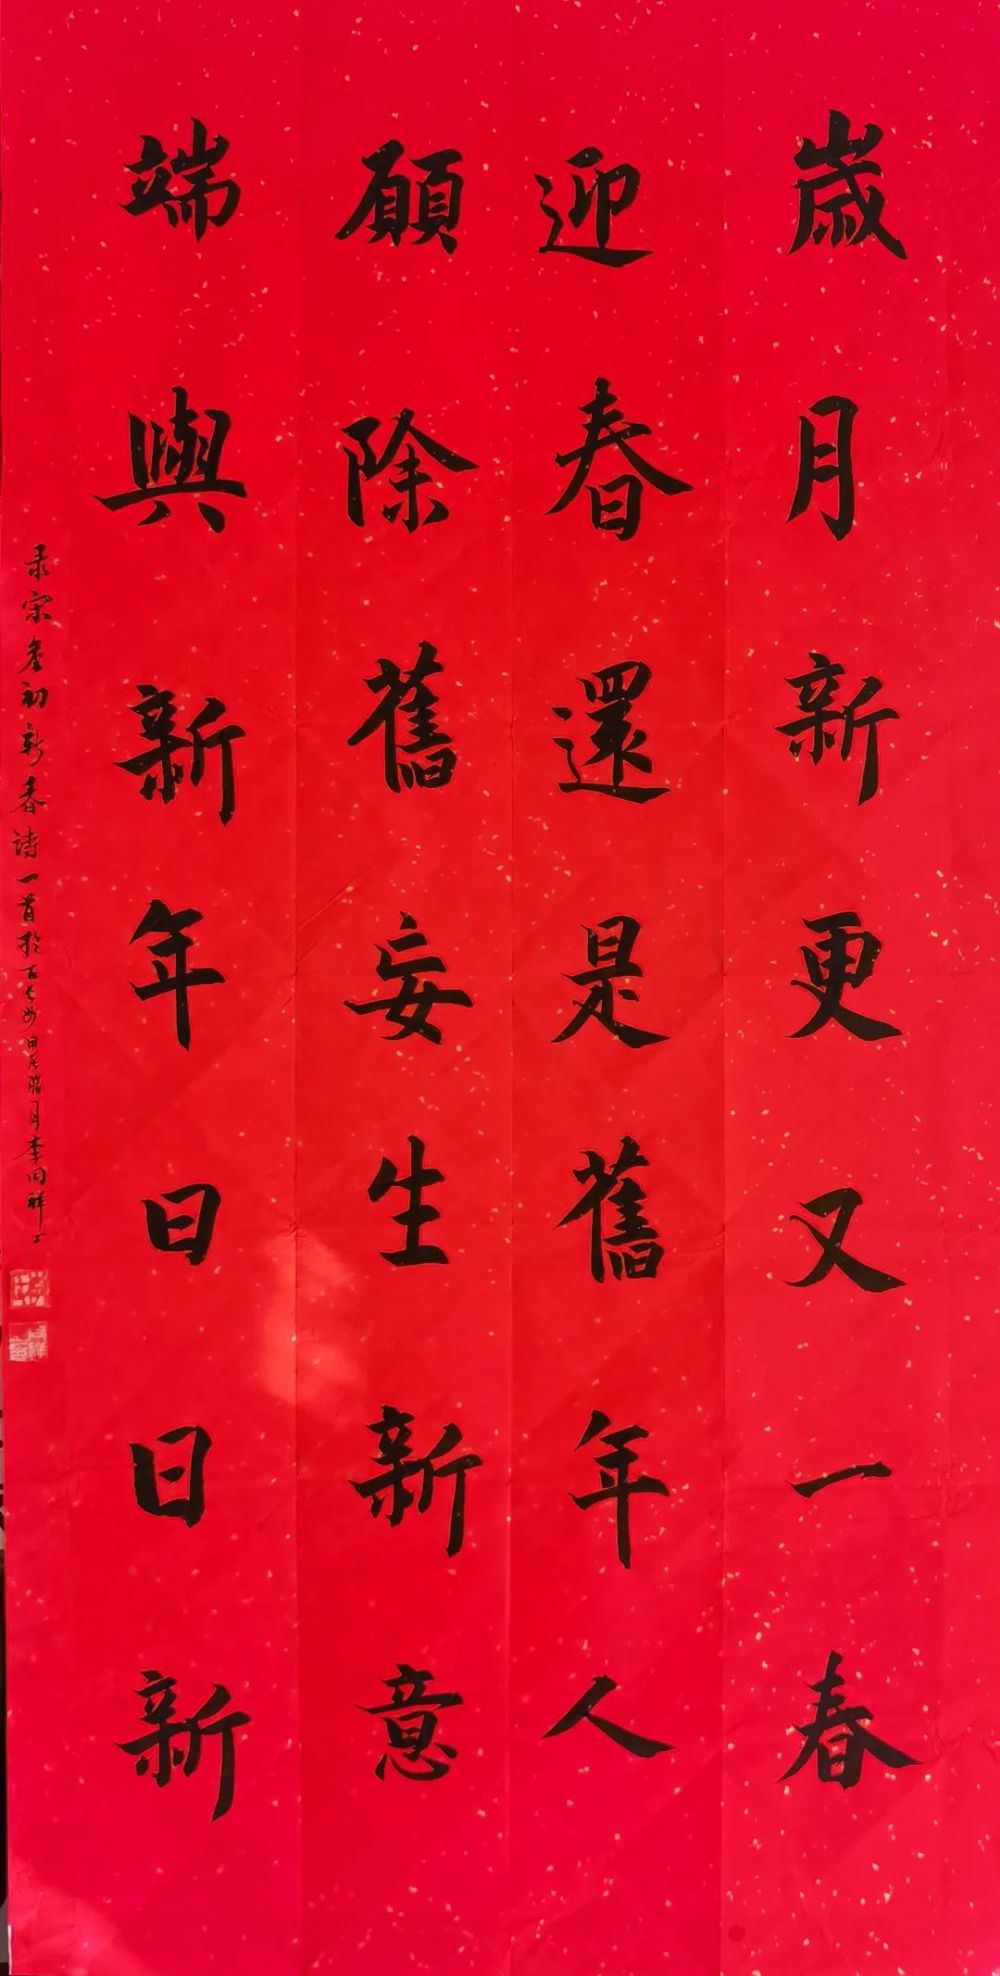 歲月新更又一春
迎春還是舊年人
願除舊妄生新意
端與新年日日新
录宋詹初新春诗一首於古七州甲辰腊月李同祥